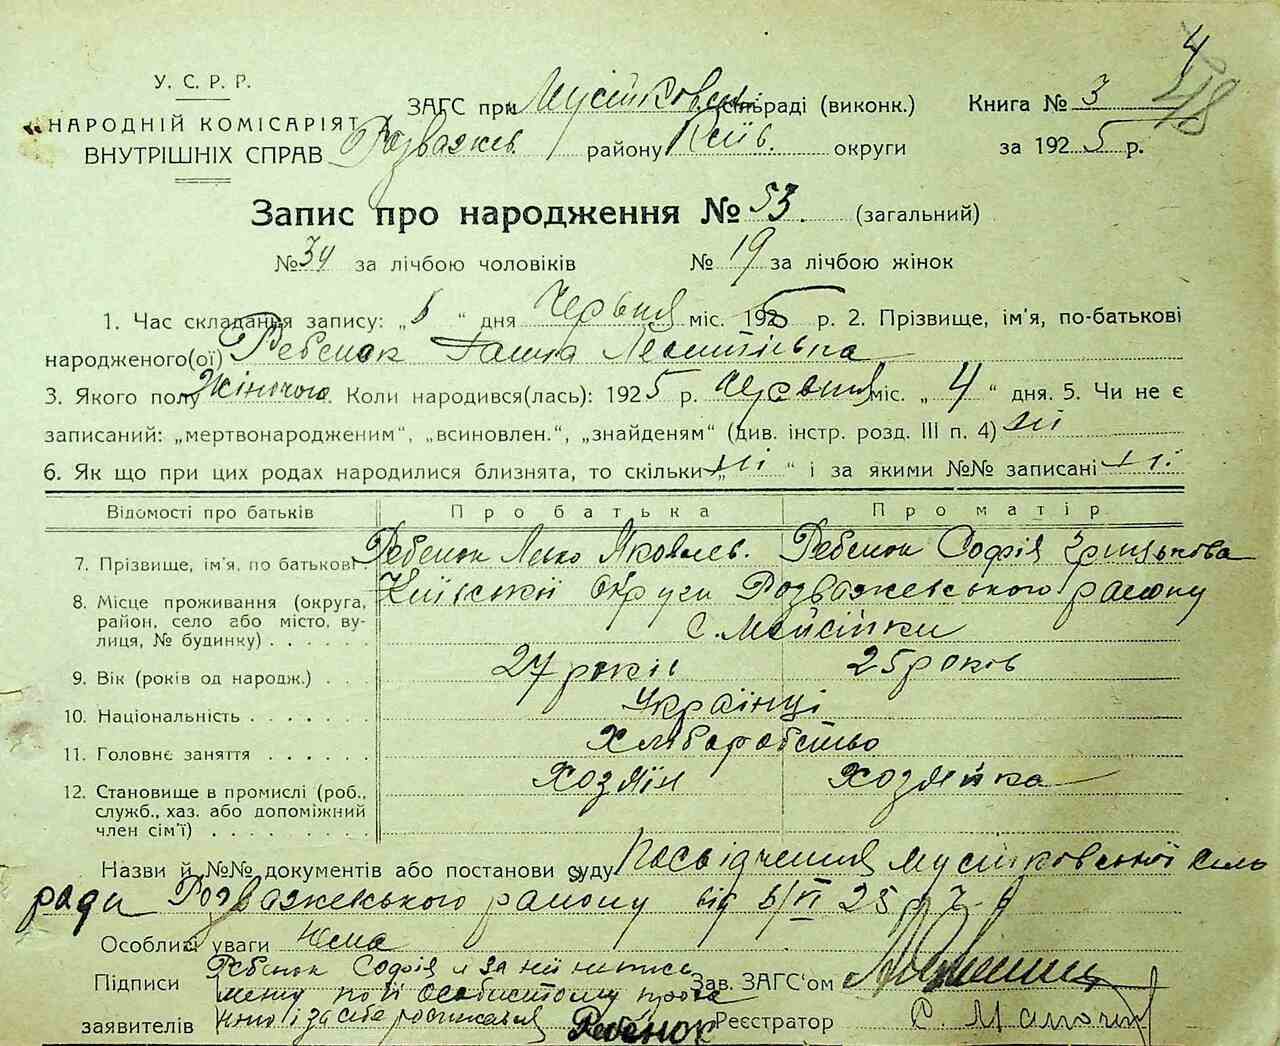 4
218
У. С. Р. Р.
НАРОДНІЙ КОМІСАРІЯТ
ВНУТРІШНІХ СПРАВ
ЗАГС при Мусійковськ. сільраді (виконк.) Книга № 3
Розважев. району Київ. округи за 1925 р.
Запис про народження № 53. (загальний)
№ 34 за лічбою чоловіків № 19 за лічбою жінок
1. Час складання запису: „6“ дня Червня міс. 1925 р. 2. Прізвище, ім'я, по-батькові
народженого(ої) Ребенок Ганна Леонтіївна
3. Якого полу Жіночого. Коли народився(лась): 1925 р. Червня міс. „4“ дня. 5. Чи не є
записаний: „мертвонародженим“, „всиновлен.“, „знайденям“ (див. інстр. розд. III п. 4) ні
6. Як що при цих родах народилися близнята, то скільки „ні“ і за якими №№ записані ні
Відомості про батьків Про батька Про матір
7. Прізвище, ім'я, по батькові Ребенок Леко Яковлев. Ребенок Софія Грицькова
8. Місце проживання (округа, Київської округи Розважевського району
район, село або місто, ву-
лиця, № будинку) с. Мойсійки
9. Вік (років од народж.) 27 років 25 років
10. Національність Українці
11. Головнє заняття Хліборобство
12. Становище в промислі (роб., Хозяїн Хозяйка
служб., хаз. або допоміжний
член сім'ї)
Назви й №№ документів або постанови суду Посвідчення Мусійковської сіль
ради Розважевського району від 6/VI 25 р
Особливі уваги Нема
Підписи Ребенок Софія а за неї непись
менну по її особистому проха
заявителів нню і за себе росписався Ребенок
Зав. ЗАГС'ом
Реєстратор С.